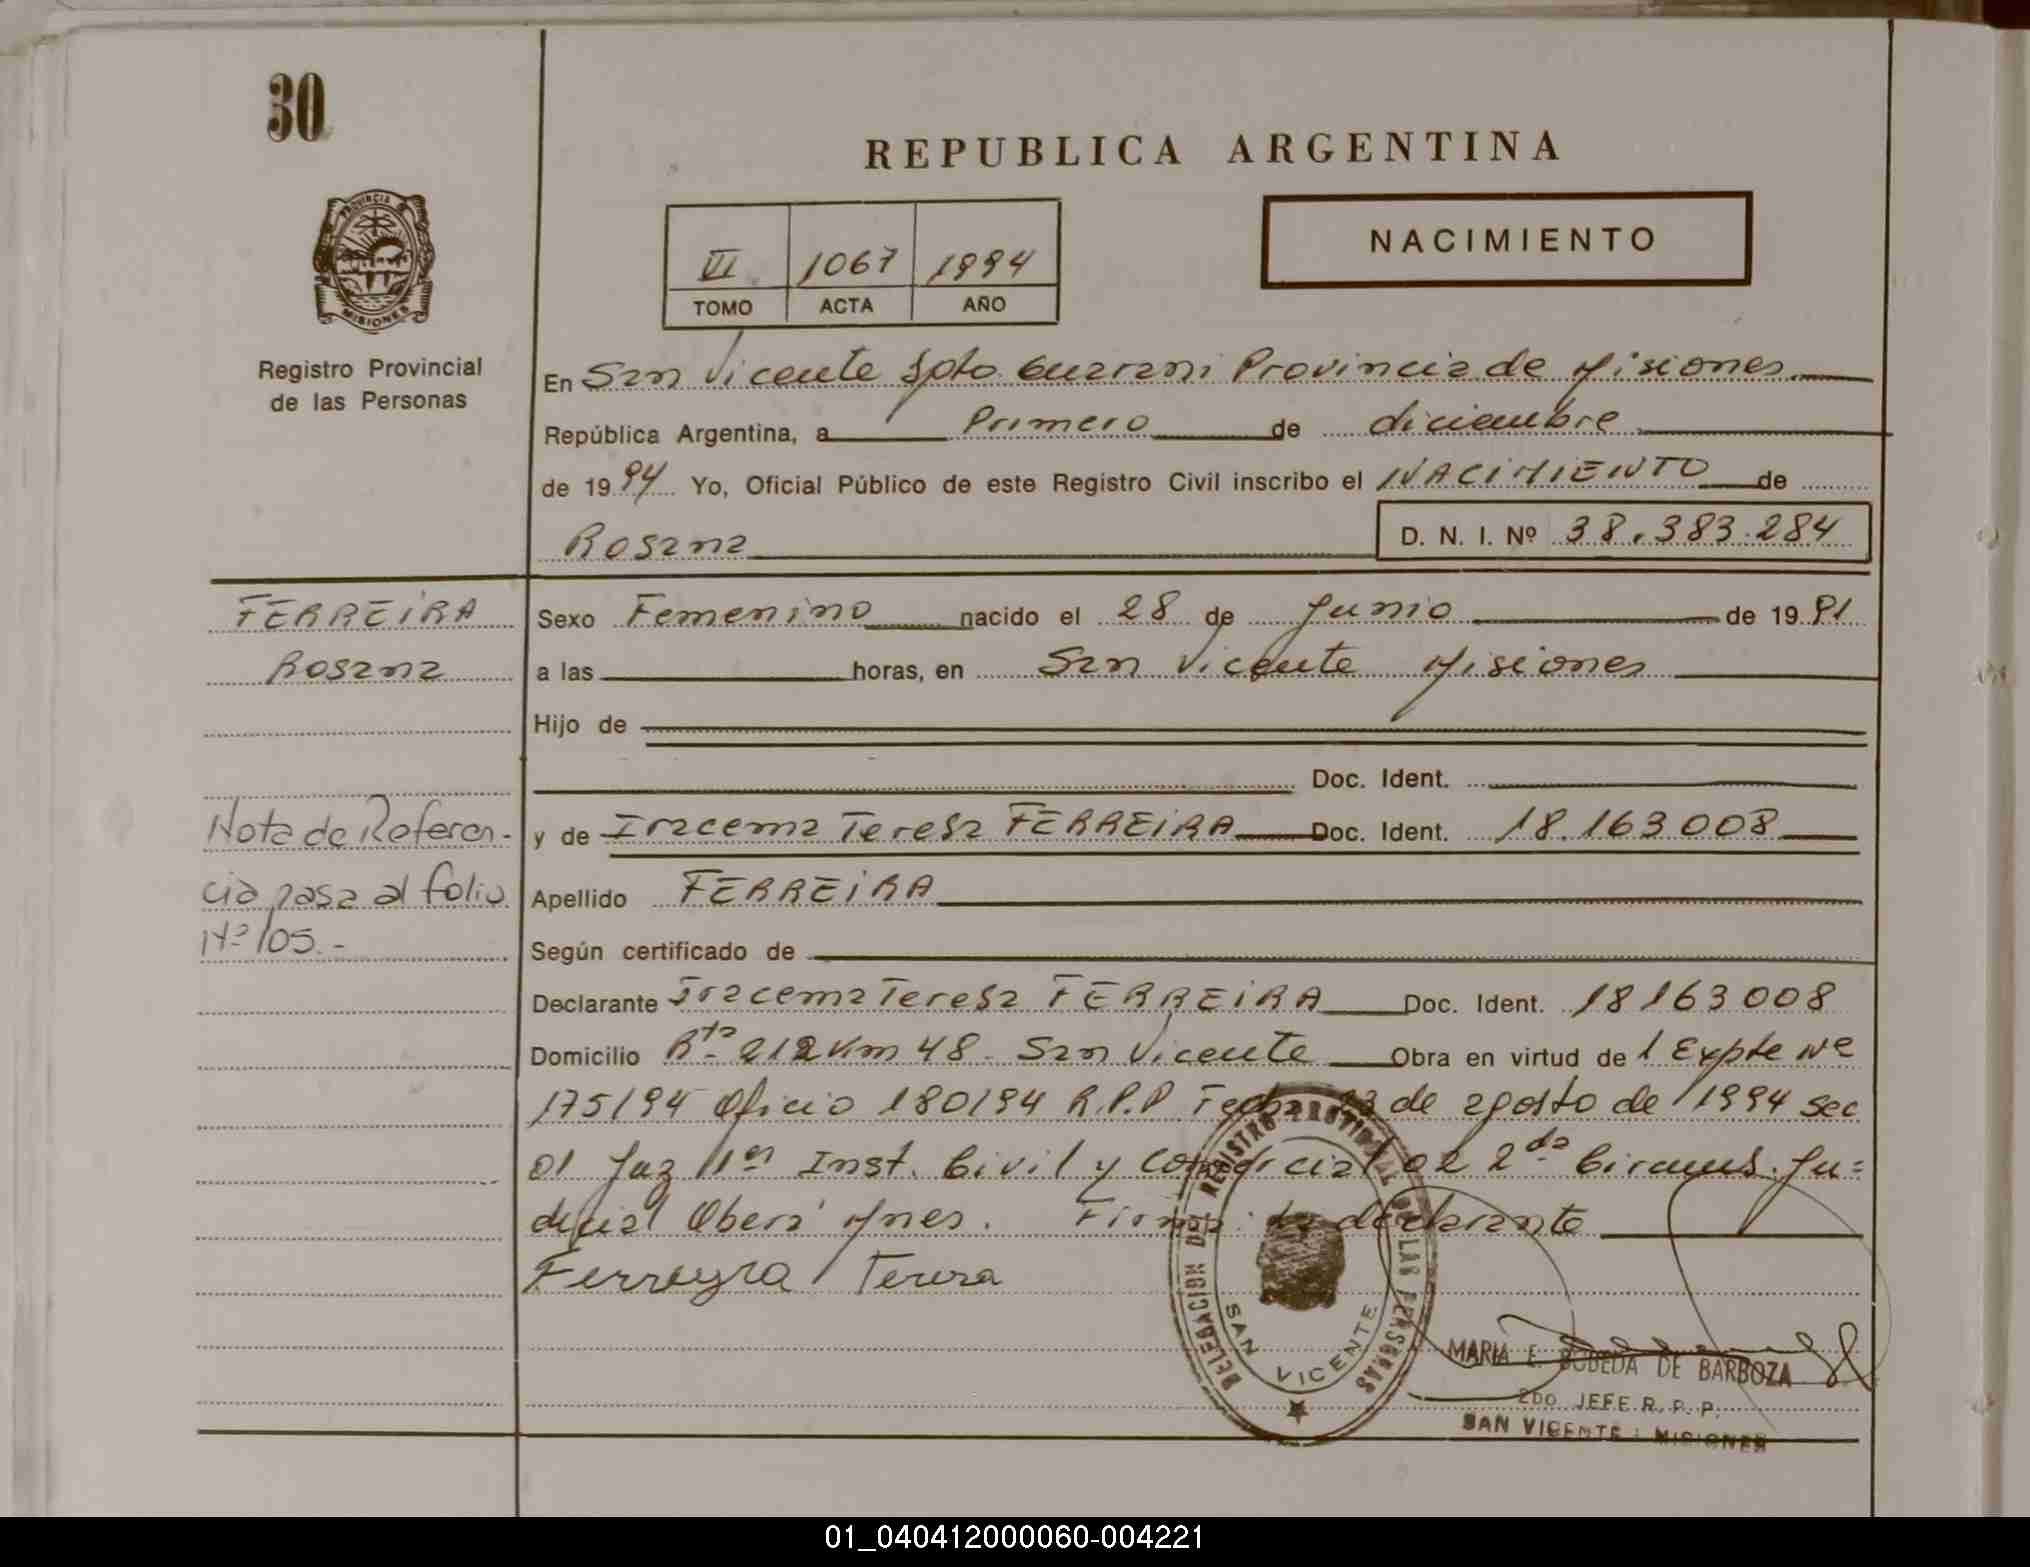 30
REPUBLICA ARGENTINA
PROVINCIA
MISIONES
VI 1067 1994
TOMO ACTA AÑO
NACIMIENTO
Registro Provincial
de las Personas
En San Vicente Dpto Guarani Provincia de Misiones
República Argentina, a Primero de diciembre
de 1994 Yo, Oficial Público de este Registro Civil inscribo el NACIMIENTO de
Rosana D. N. I. Nº 38.383.284
FERREIRA
Rosana
Sexo Femenino nacido el 28 de Junio de 1991
a las horas, en San Vicente Misiones
Hijo de
Doc. Ident.
Nota de Referen-
cia pasa al folio
Nº 105.-
y de Iracema Teresa FERREIRA Doc. Ident. 18.163008
Apellido FERREIRA
Según certificado de
Declarante Iracema Teresa FERREIRA Doc. Ident. 18163008
Domicilio Rta 212 Km 48 - San Vicente Obra en virtud de 1 Expte Nº
175/94 Oficio 180/94 R.P.P Fecha 13 de agosto de 1994 sec
01 Juz 1er Inst. Civil y Comercial 02 2da Circuns. Ju=
dicial Oberá Mnes. Firma: la declarante
Ferreyra Teresa
DELEGACION DEL REGISTRO PROVINCIAL DE LAS PERSONAS
SAN VICENTE
MARIA E. BOBEDA DE BARBOZA
2DO. JEFE R. P. P.
SAN VICENTE - MISIONES
01_040412000060-004221